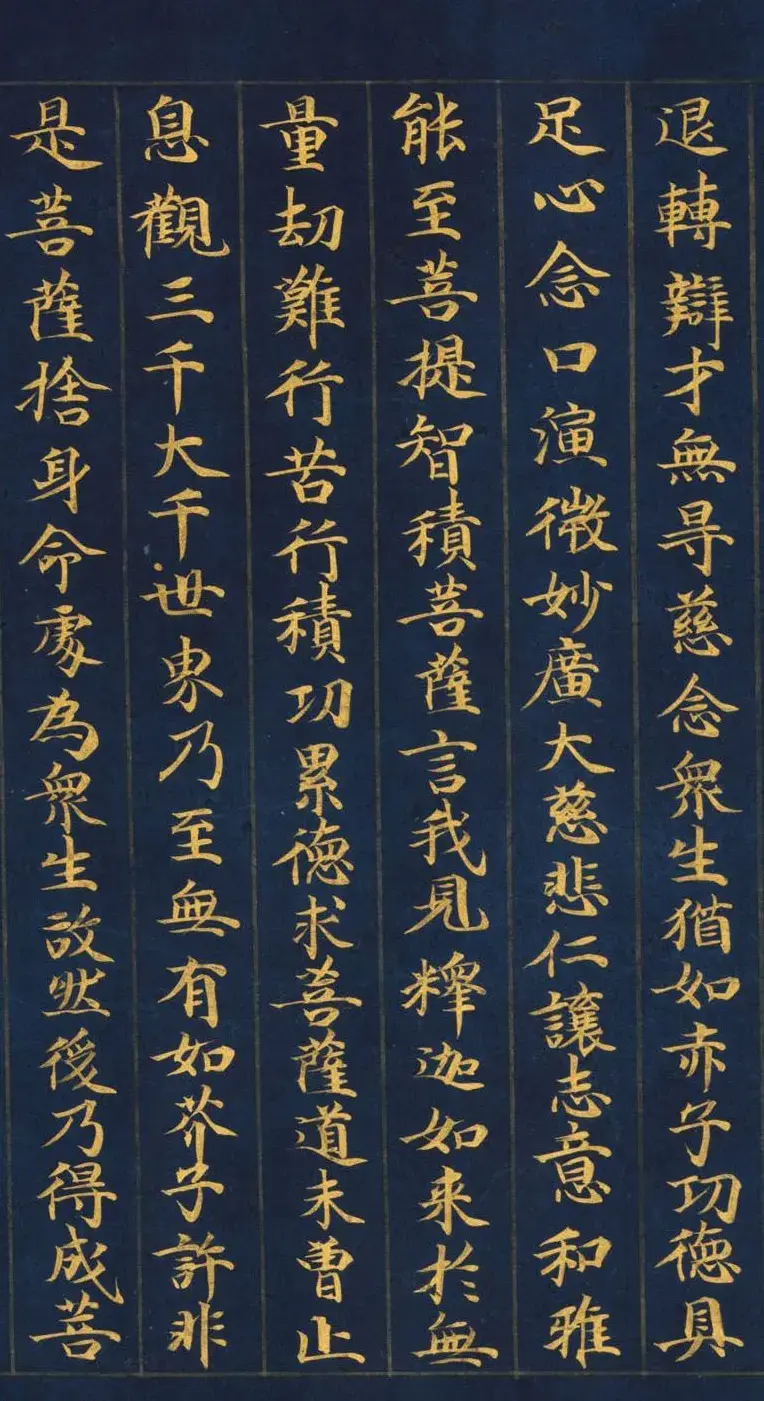 退轉辯才無㝵慈念衆生猶如赤子功德具
足心念口演微妙廣大慈悲仁讓志意和雅
能至菩提智積菩薩言我見釋迦如来於無
量劫難行苦行積功累德求菩薩道未曽止
息觀三千大千世界乃至無有如芥子許非
是菩薩捨身命處為衆生故然後乃得成菩